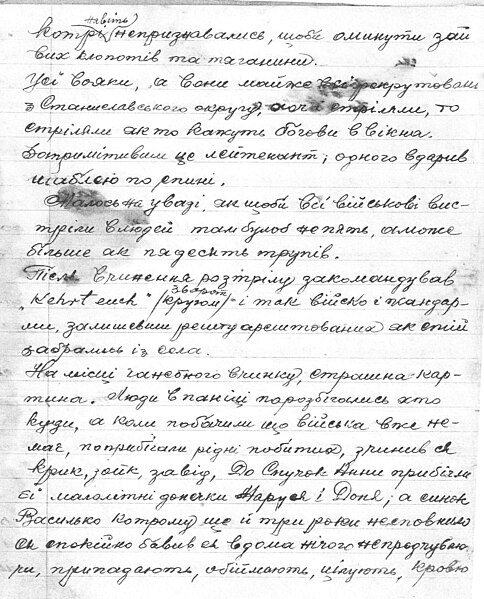 навіть
котрі непризнавались, щоби оминути зай
вих клопотів та таганини.
Усі вояки, а вони майже всі рекрутовані
з Станиславського округу, хоча стріляли, то
стріляли як то кажуть богови в вікна.
Запримітивши це лейтенант, одного вдарив
шаблею по спині.
Малось на увазі, як щоби всі військові вис-
тріли влюдей там булоб не пять, аможе
більше як пядесять трупів.
Після вчинення розтрілу закомандував
зворот
"Kehrt euch" (кругом) - і так військо і жандар-
ми, залишевши решту арештованих як стій
забрались із села.
На місці ганебного вчинку, страшна кар-
тина. Люди впаніці порозбігались хто
куди, а коли побачили що війська вже не-
має, поприбігали рідні побитих, зчинив ся
крик, зойк, завід, До Спучок Анни прибігли
єї малолітні донечки Маруся і Доня; а синок
Василько котрому ще й три роки несповнило
ся спокійно бавив ся вдома нічого непредчуваю-
чи, припадають, обіймають, цілують, кровю